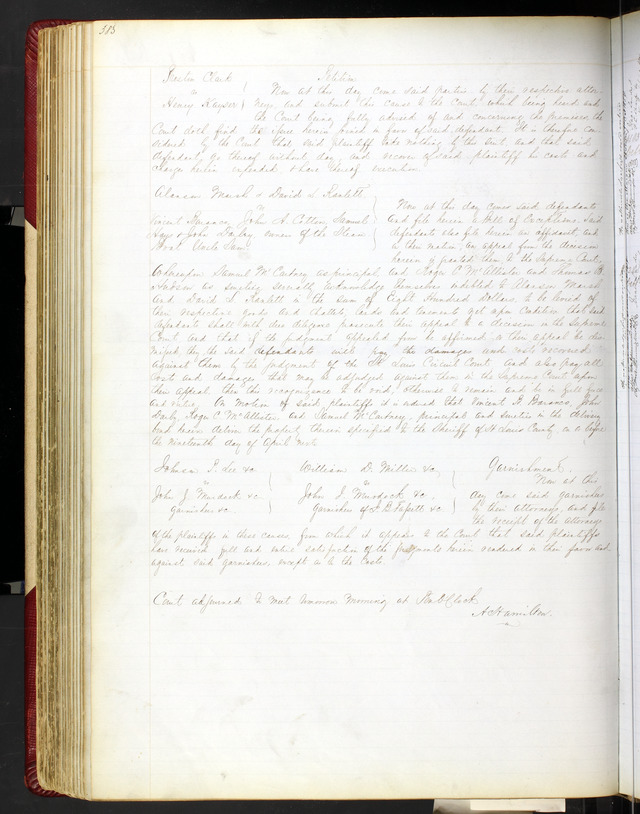 Clark Petition
vs Now at this day come said parties by their respective attor
Henry Kayser neys and submit this cause to the Court which being heard and
the Court being fully advised of and concerning the premises, the
Court doth find the issue herein joined in favor of said defendant. It is therefore con
sidered by the Court that said plaintiff take nothing by this suit and that said
defendant go thereof without day, and recover of said plaintiff his costs and
charges herein expended & have thereof execution.
Alanson Marsh & David L. Raslett
vs Now at this day comes said defendants
John A. Cotton Samuel and file herein a Bill of Exceptions. Said
Hays & John Darby owners of the Steam defendants also file herein an affidavit and
Boat Uncle Sam on their motion an appeal from the decision
herein is granted them to the Supreme Court.
Whereupon Samuel McCartney as principal and Roger C McAllister and Thomas B.
Hudson as sureties severally acknowledge themselves indebted to Alanson Marsh
and David L. Raslett in the sum of Eight Hundred Dollars, to be levied of
their respective goods and chattels, lands and tenements yet upon condition that said
defendants shall with due diligence prosecute their appeal to a decision in the Supreme
Court and that if the judgment appealed from be affirmed, or their appeal be dis
missed then the said defendants will pay the damages and costs recovered
against them by the judgment of the St Louis Circuit Court, and also pay all
costs and damages that may be adjudged against them in the Supreme Court upon
their appeal then this recognizance to be void, otherwise to remain and be in full force
and virtue. On motion of said plaintiffs it is ordered that Vincent John
Darby, Roger C McAllister and Samuel McCartney, principal and sureties in the delivery
bond herein deliver the property therein specified to the Sheriff of St Louis County on or before
the nineteenth day of April next.
Johnson Lee &c William D. Miller &c Garnishment.
vs vs Now at this
John J. Murdock &c John J. Murdock &c. day come said garnishees
Garnishee &c. Garnishees of &c by their attorneys, and file
the receipt of the attorneys
of the plaintiffs in these causes, from which it appears to the Court that said plaintiffs
have received full and entire satisfaction of the judgments herein rendered in their favor and
against said garnishees, except as to the costs.
Court adjourned to meet tomorrow morning at Ten O'Clock
A Hamilton.